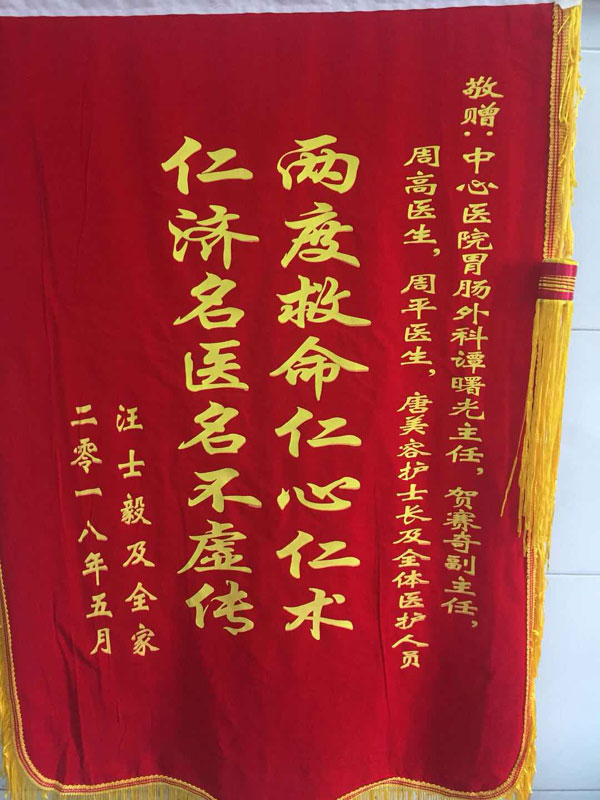 敬赠:中心医院胃肠外科谭曙光主任,贺赛奇副主任,
周高医生,周平医生,唐美容护士长及全体医护人员
两度救命仁心仁术
仁济名医名不虚传
汪士毅及全家
二零一八年五月